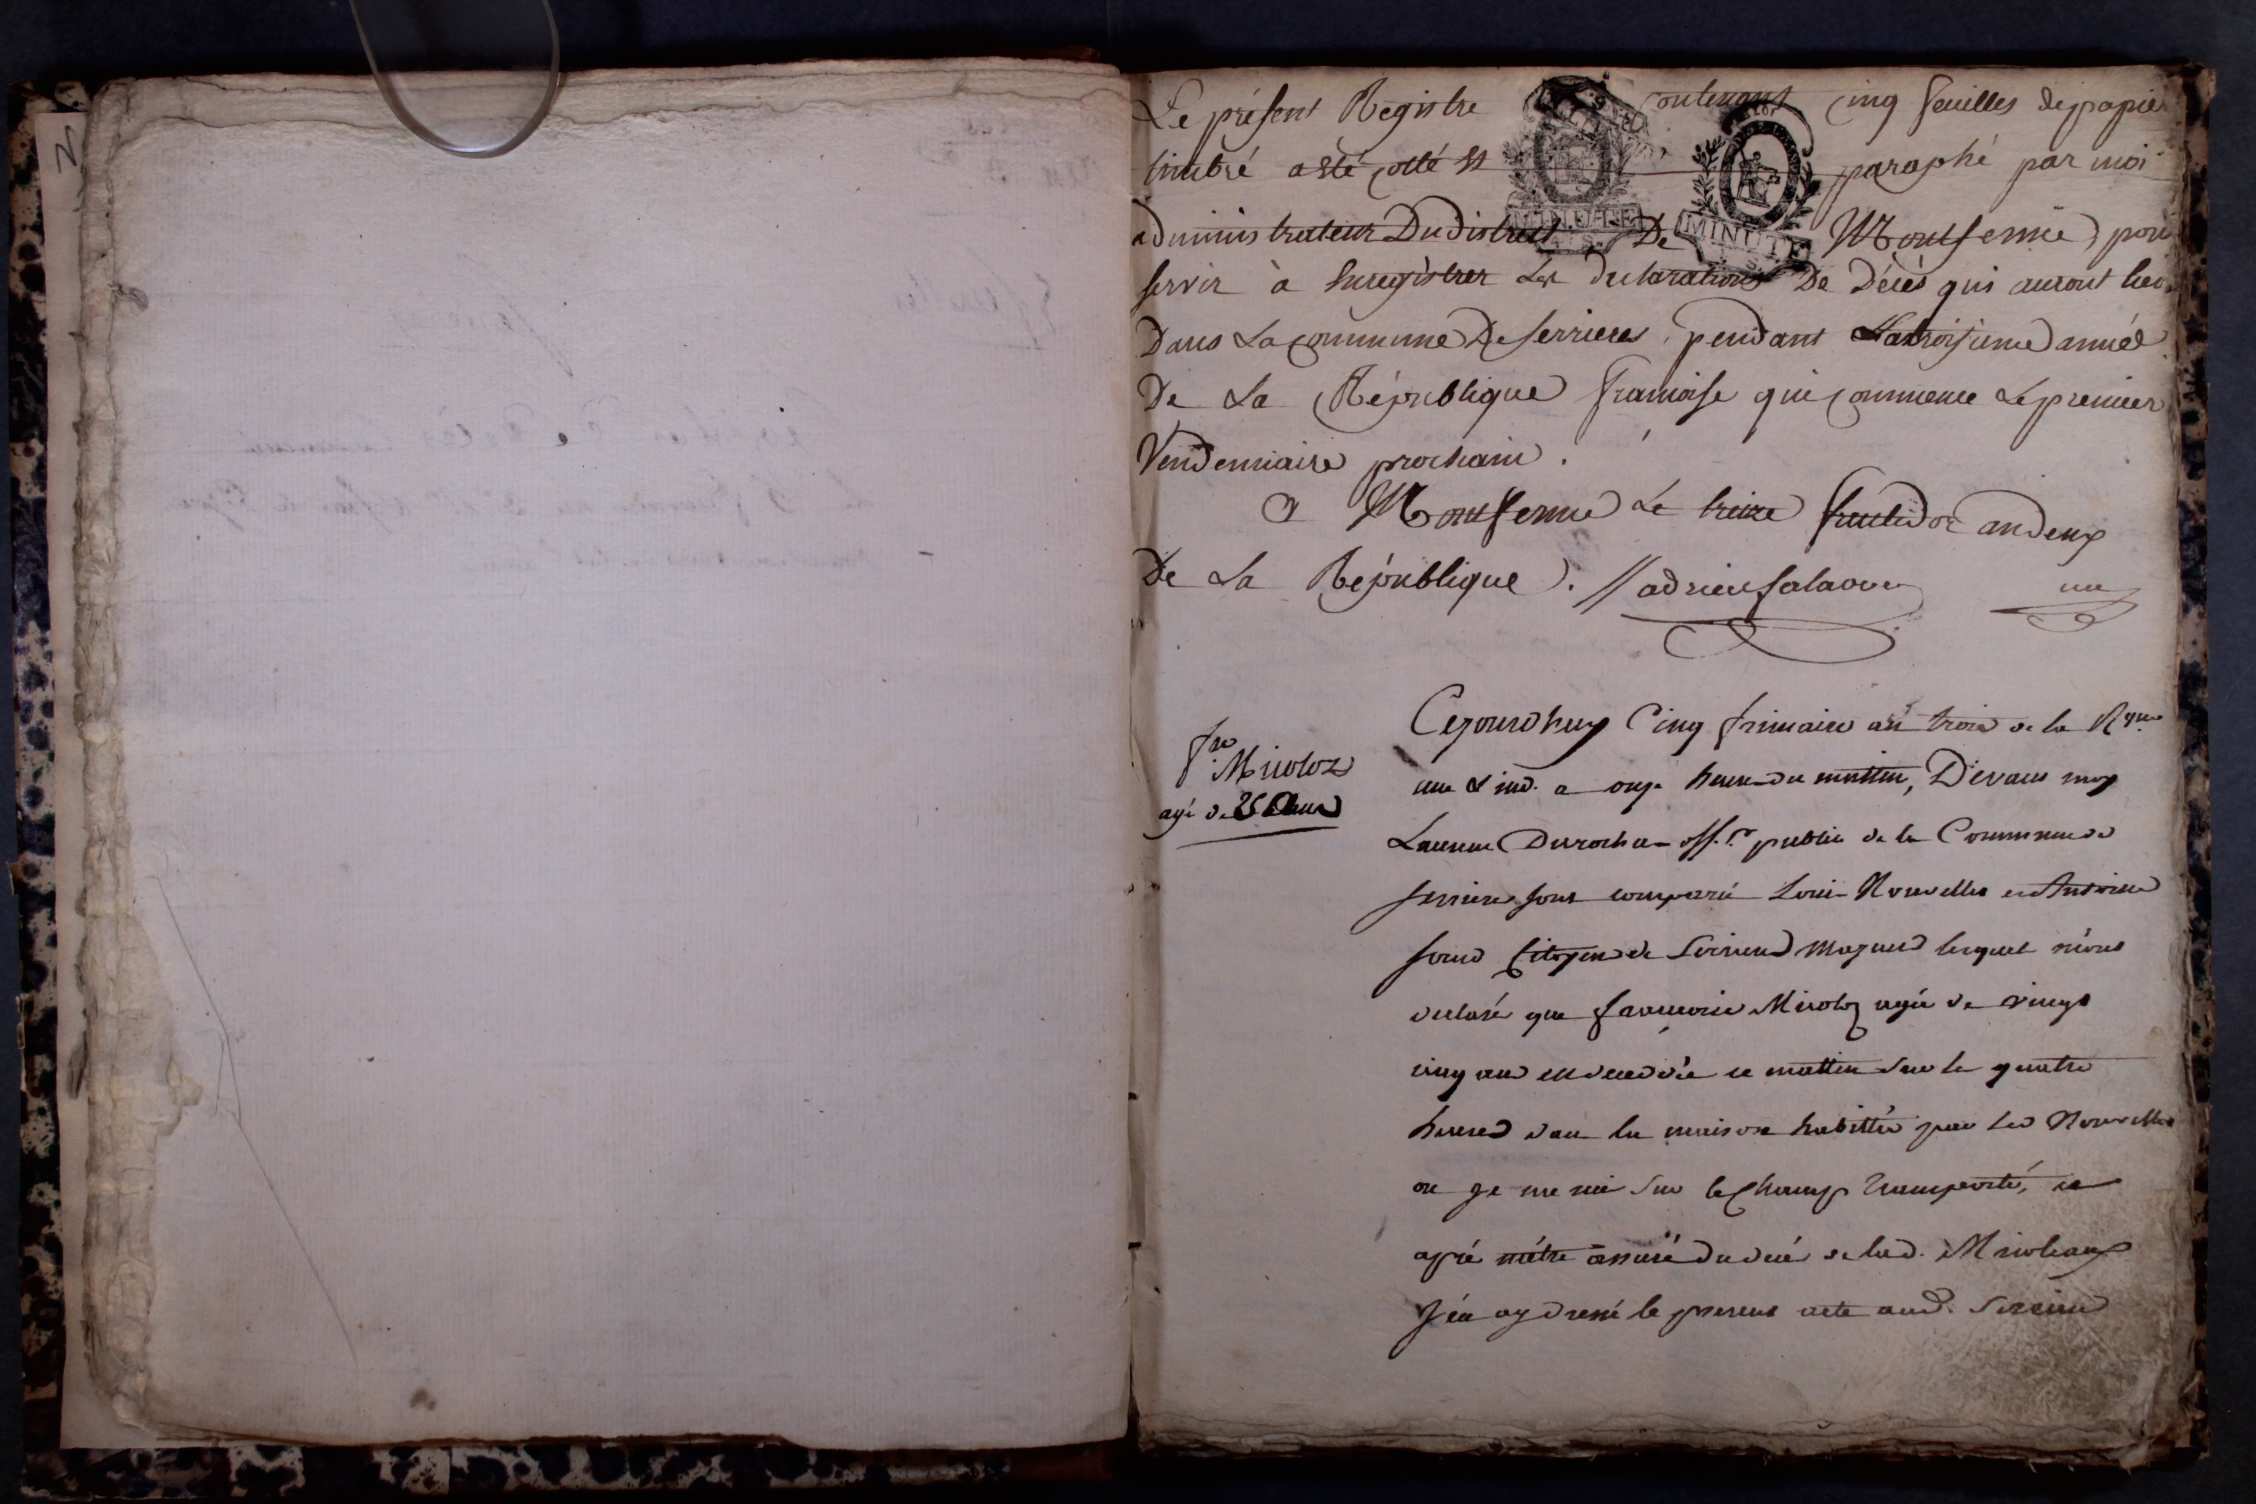 Le présent Registre contenant cinq feuilles de papier
timbré a été cotté et paraphé par moi
administrateur Du district De Montferme, pour
servir à Enregistrer Les declarations De Décès qui auront lieu
Dans La commune De Serrieres, pendant La troisieme année
De La République francoise qui commence Le premier
Vendemiaire prochain.
a Montferme Le treize fructidor an deux
De La République. adrien
une
MINUTE
MINUTE
fse Micoloz
agé de 25 ans
Cejourdhuy Cinq frimaire an trois de la Rque
une & ind. a onze heure du mattin, Devant moy
Laurent Durochat off.r public de la Commune de
Serriere sont comparu Louis Nouvelles et Antoine
citoyen de Serriere lesquel m'ont
declaré que francoise Micoloz agée de vingt
cinq ans est decedée ce mattin sur le quatre
heures dans la maison habittée par led Nouvelles
ou je me suis sur le champ transporté, et
apré m'être assuré du décé de lad.
J'en ay dressé le present acte aud. Serriere